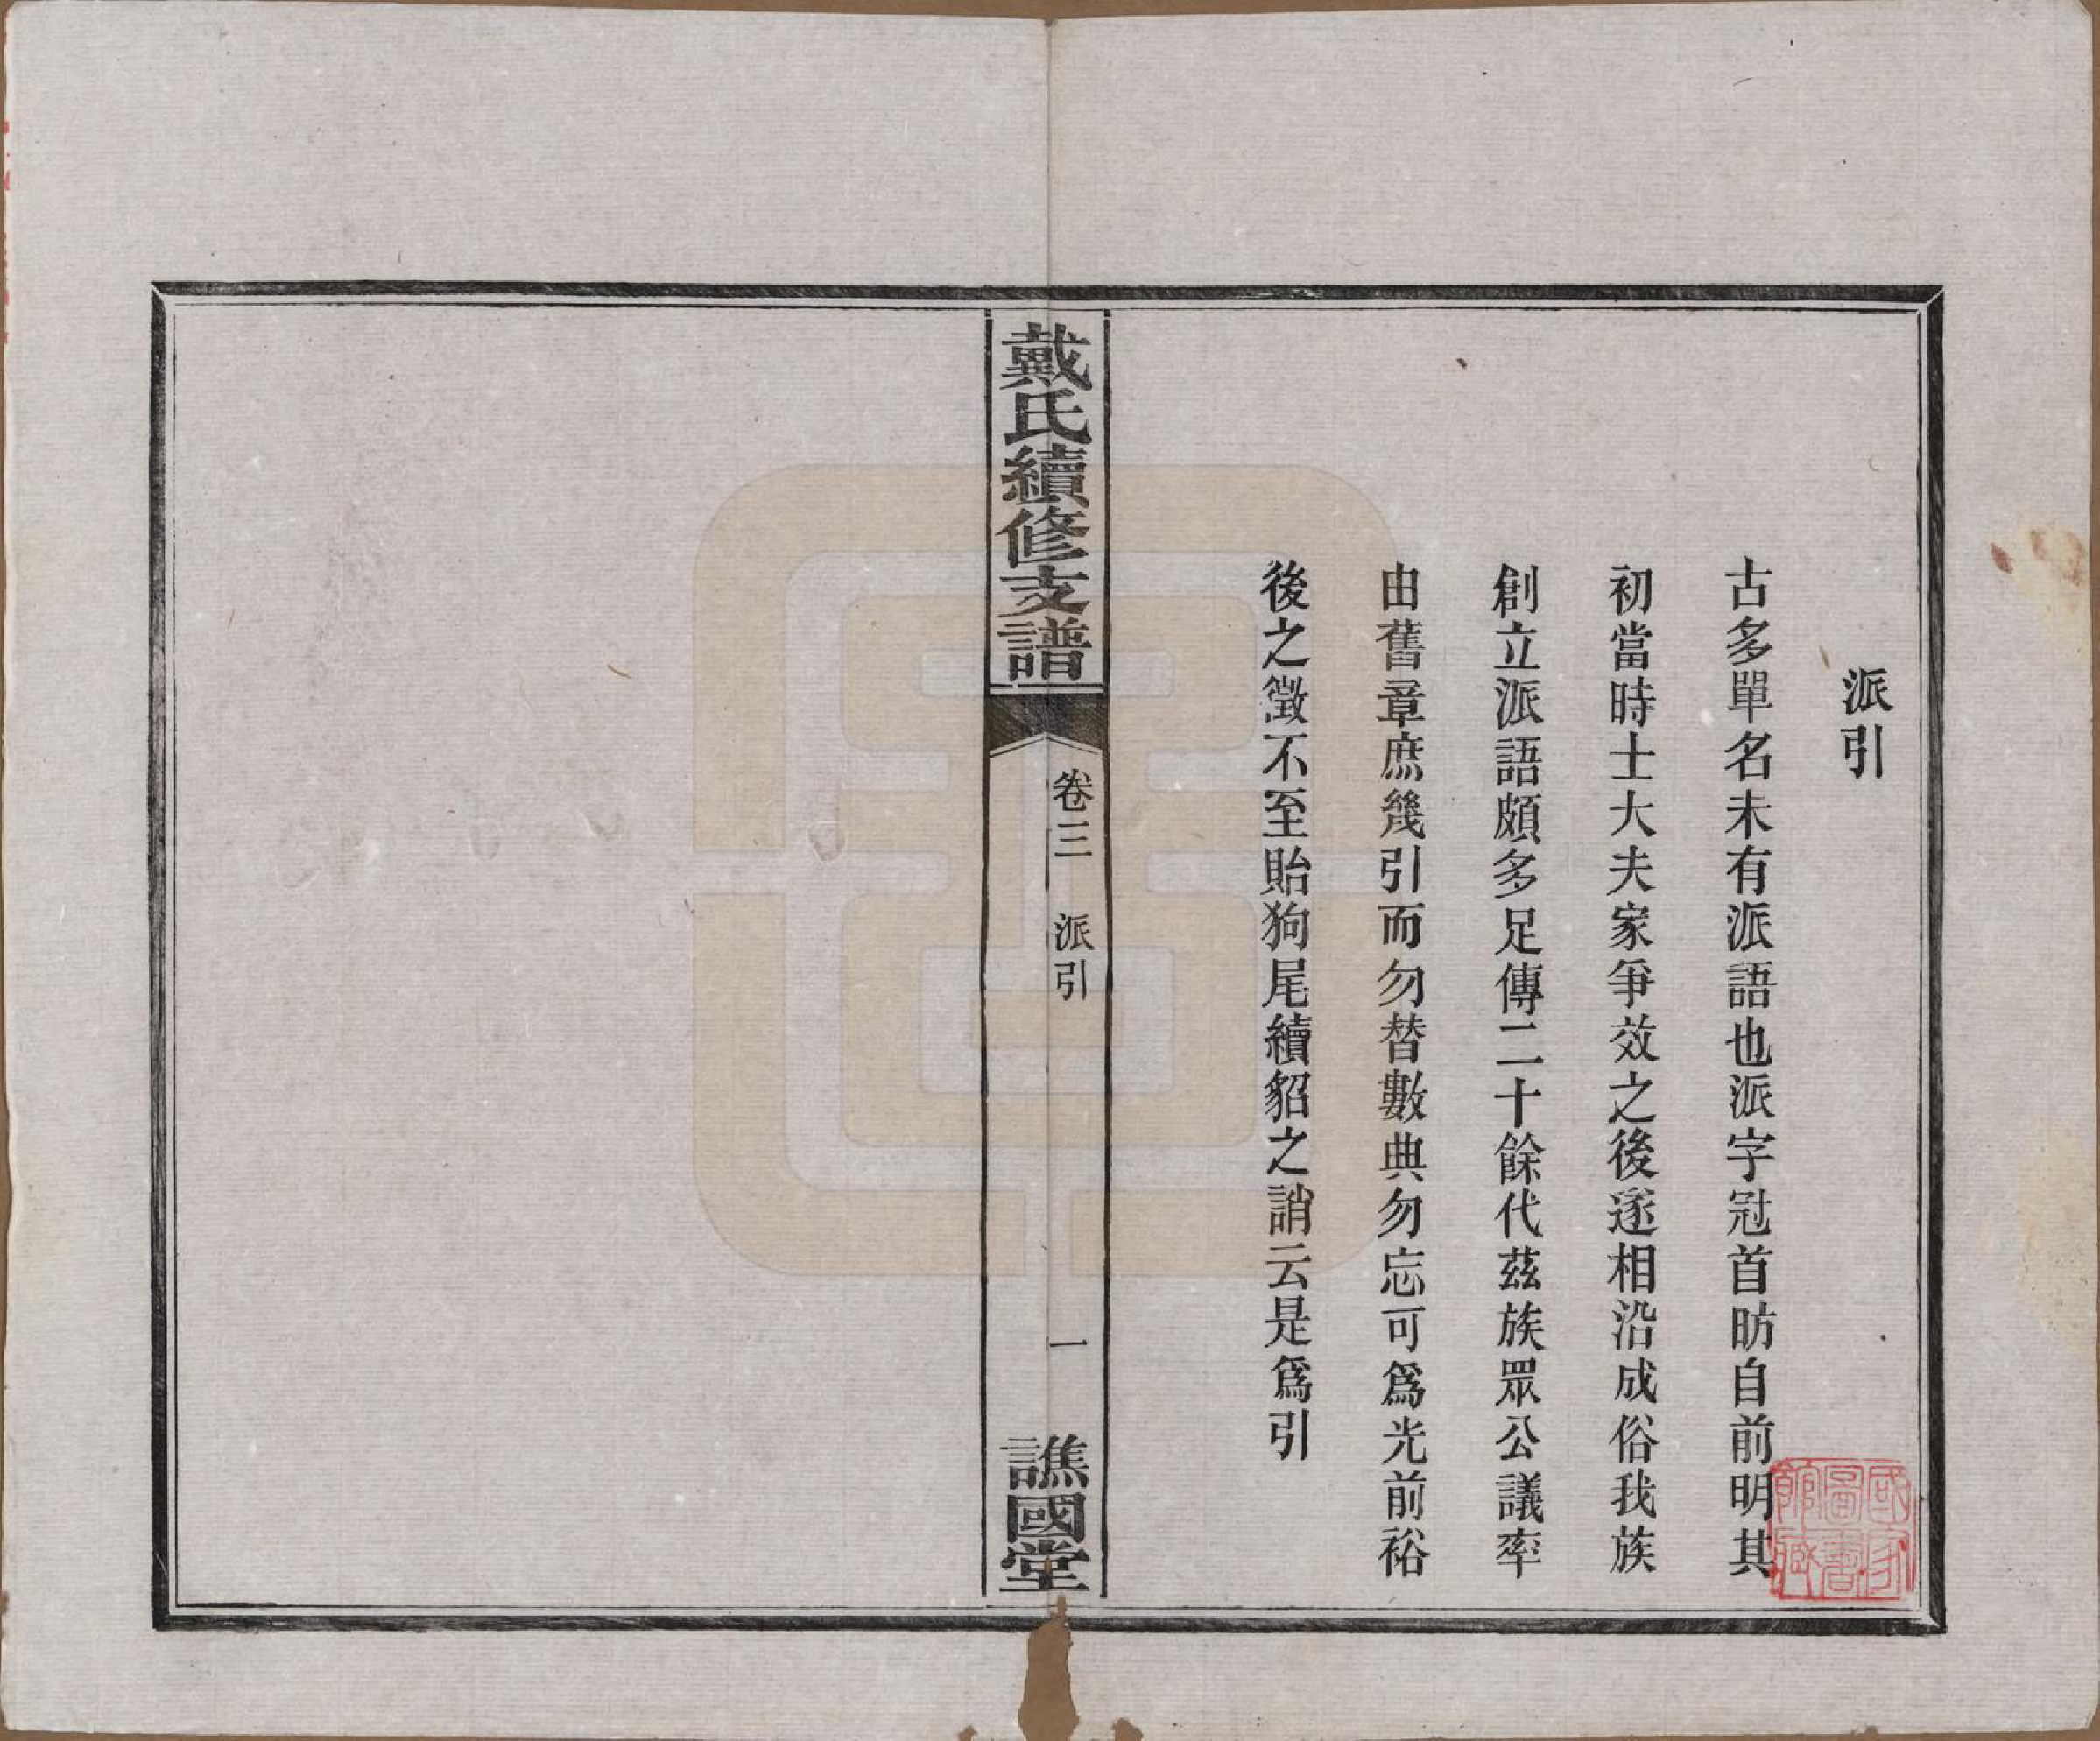 派引
古多單名未有派語也派字冠首昉自前明其
初當時士大夫家爭效之後遂相沿成俗我族
創立派語頗多足傳二十餘代茲族眾公議率
由舊章庶幾引而勿替數典勿忘可爲光前裕
後之徵不至貽狗尾續貂之誚云是爲引
戴氏續修支譜
卷三 派引
一
譙國堂
國家
圖書
館藏